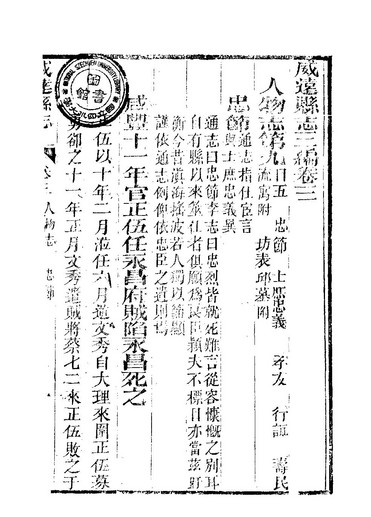 威遠縣志三編卷三
人物志第九 目五 忠節 士庶忠義 孝友 行誼 壽民
流寓附 坊表邱墓附
忠節 通志指仕宦言
與士庶忠義異
通志曰忠節李志曰忠烈皆就死難言從容慷慨之別耳
自有縣以來筮仕者俱願為良臣類大不標目亦當茲
衡今昔滇海搖波若人獨以節顯
謹依通志例仰依忠臣之遺則焉
咸豐十一年官正伍任永昌府賊陷永昌死之
正伍以十年二月涖任六月逆文秀自大理來圍正伍募
勇卻之十一年正月文秀遣賊將蔡七二來正伍敗之于
威遠縣志 卷三 人物志 忠節